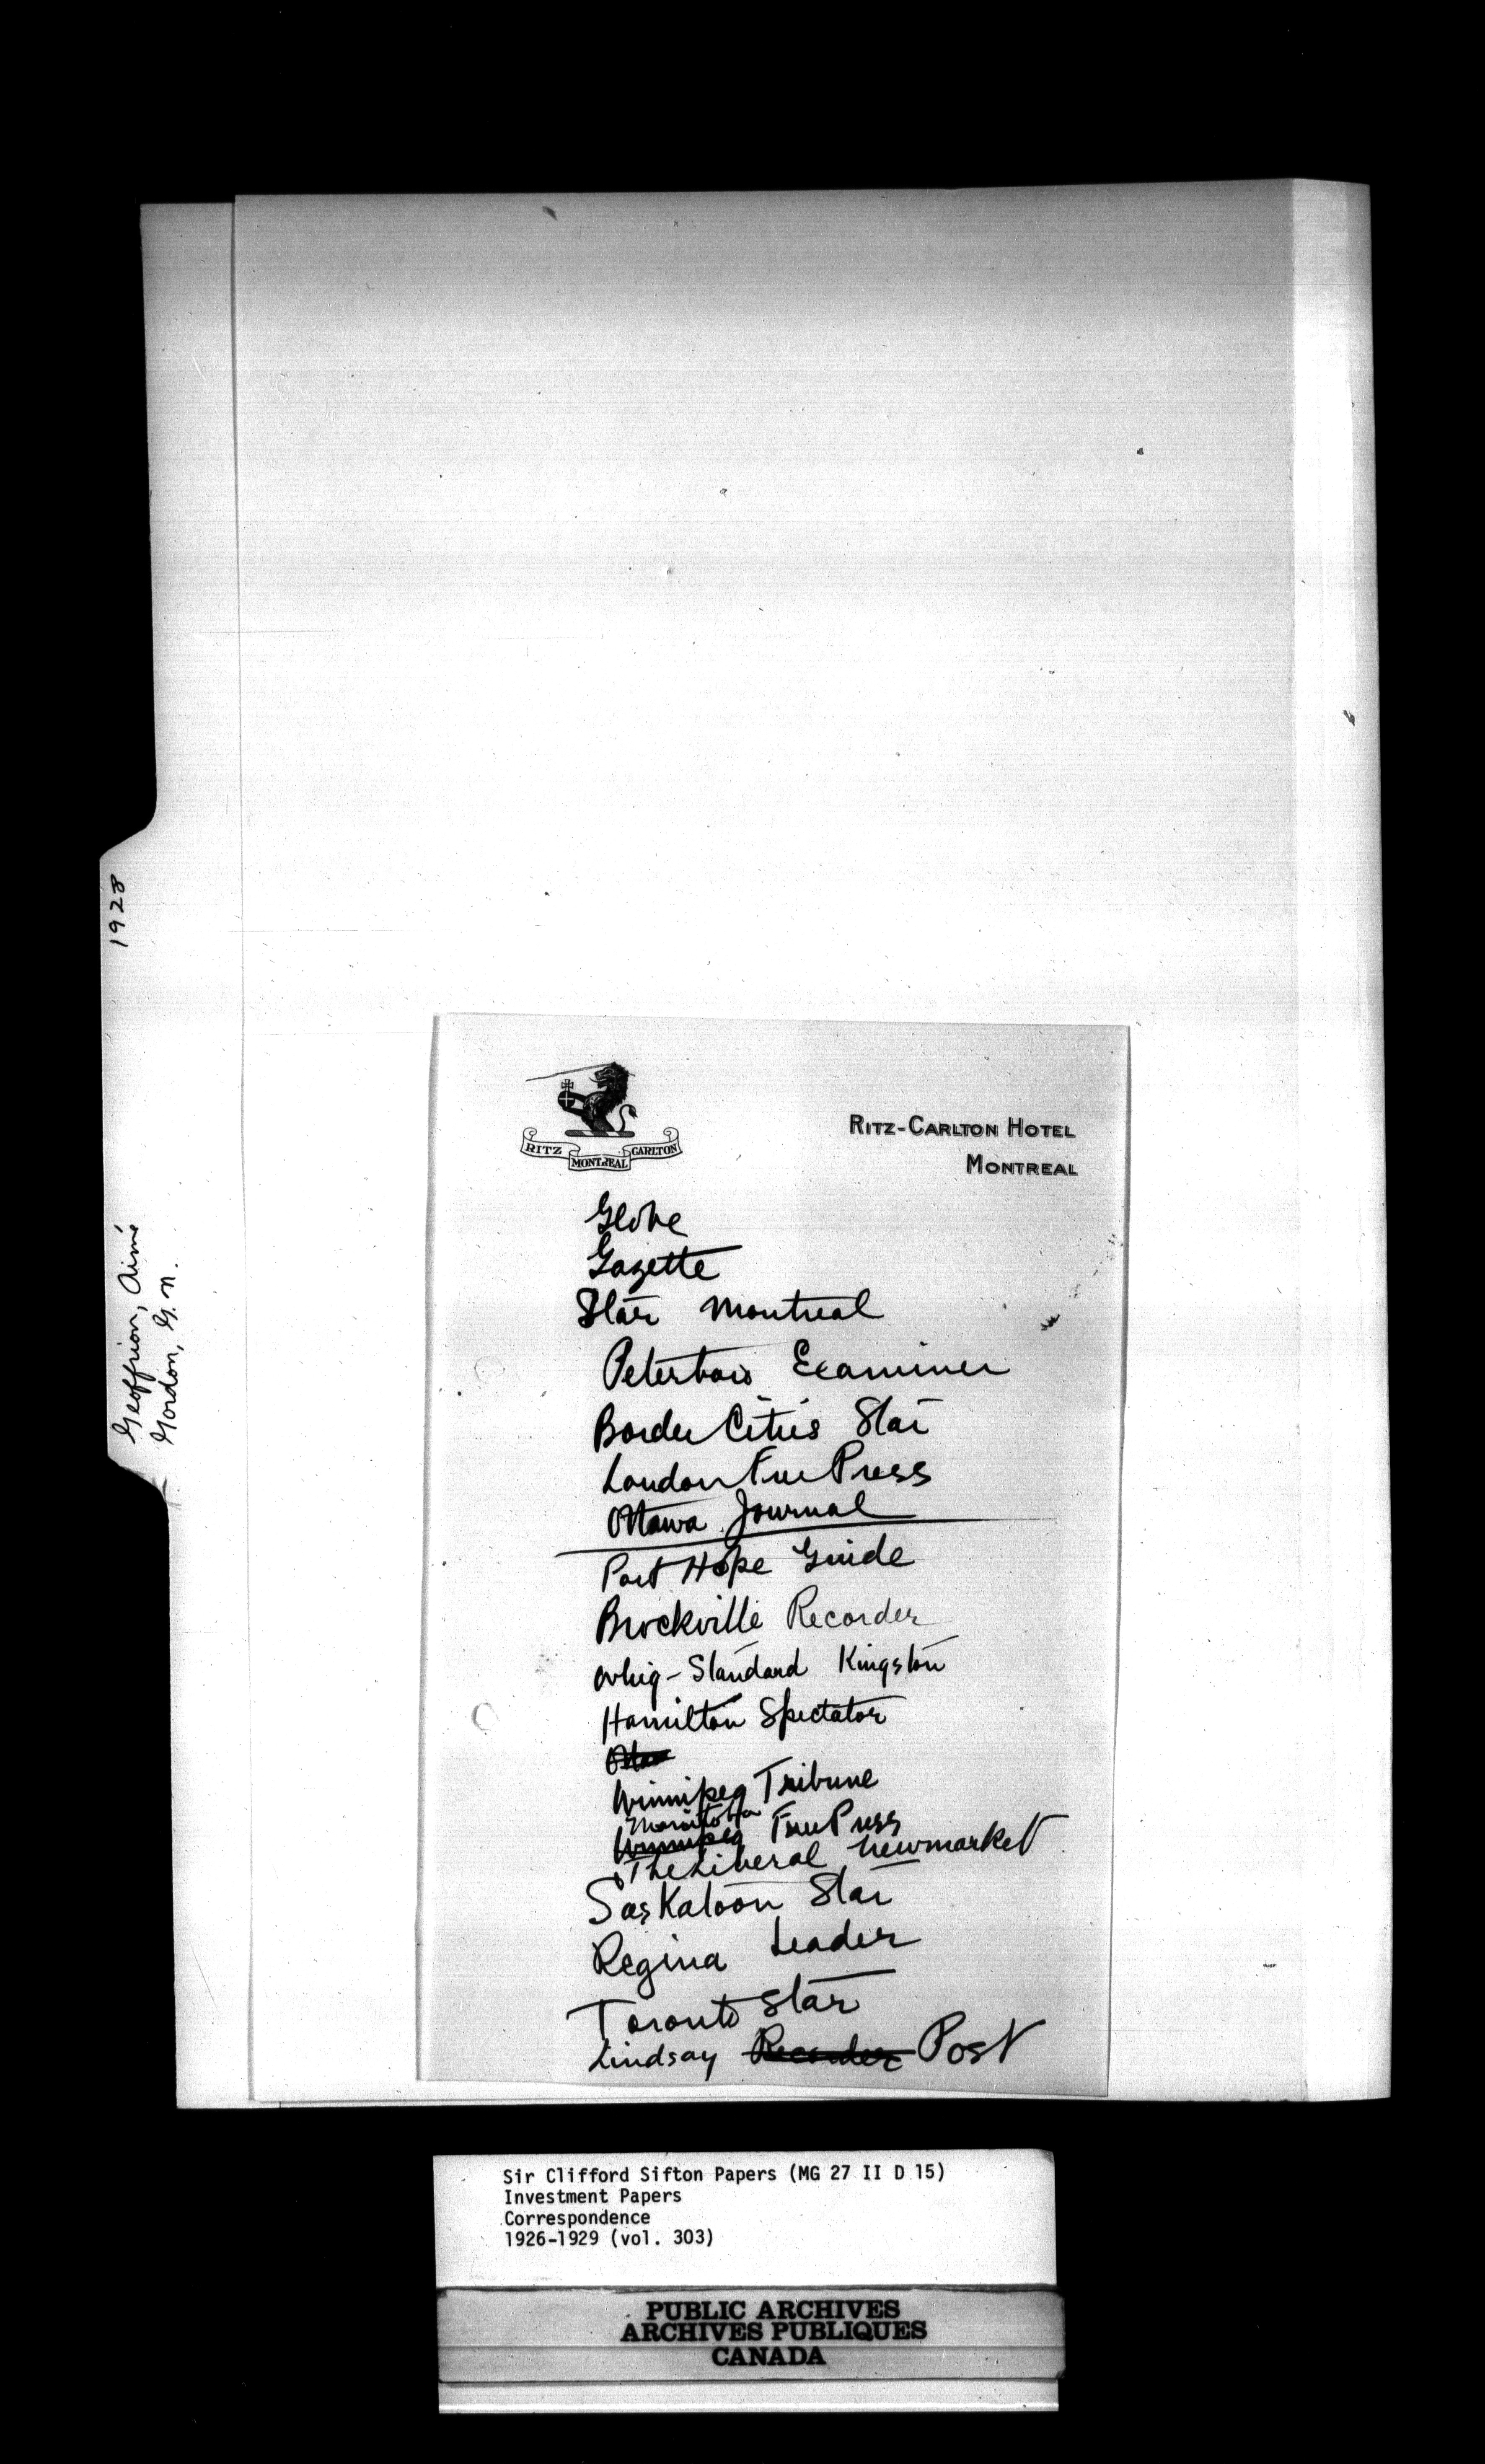 1928
Geoffrion, Aimé
Gordon, G. N.
RITZ MONTREAL CARLTON
RITZ-CARLTON HOTEL
MONTREAL
Globe
Gazette
Star Montreal
Peterboro Examiner
Border Cities Star
London Free Press
Ottawa Journal
Port Hope Guide
Brockville Recorder
Whig-Standard Kingston
Hamilton Spectator
Winnipeg Tribune
Manitoba
Winnipeg Free Press
The Liberal Newmarket
Saskatoon Star
Regina Leader
Toronto Star
Lindsay Recorder Post
Sir Clifford Sifton Papers (MG 27 II D 15)
Investment Papers
Correspondence
1926-1929 (vol. 303)
PUBLIC ARCHIVES
ARCHIVES PUBLIQUES
CANADA